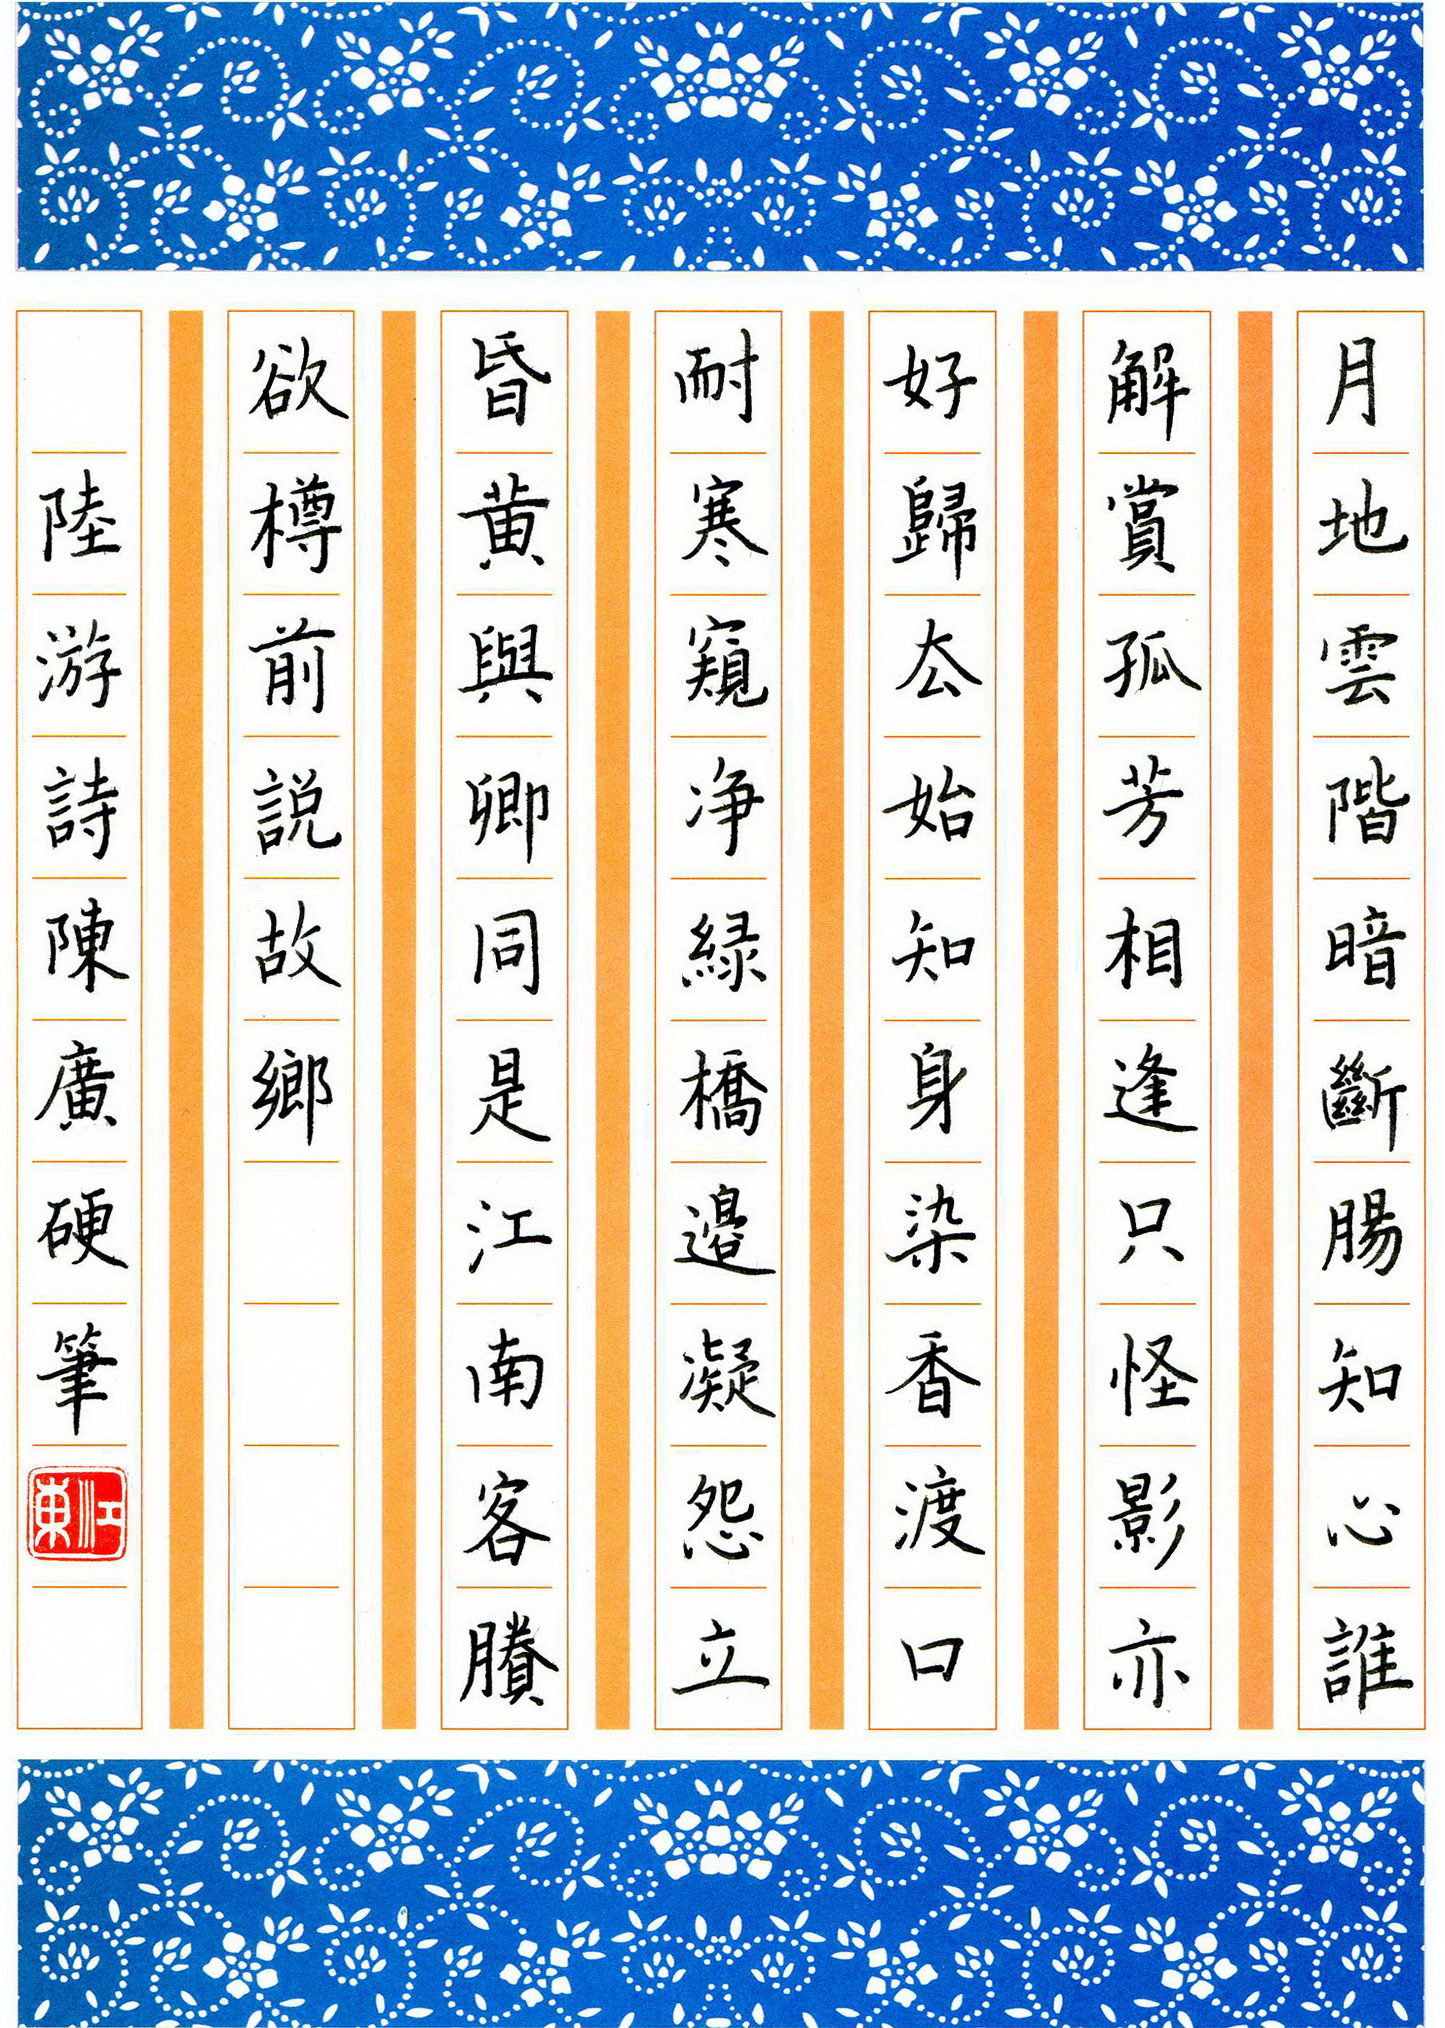 月地雲階暗斷腸知心誰
解賞孤芳相逢只怪影亦
好歸厺始知身染香渡口
耐寒窺净緑橋邊凝怨立
昏黄與卿同是江南客賸
欲樽前説故鄉
陸游詩陳廣硬筆
江東